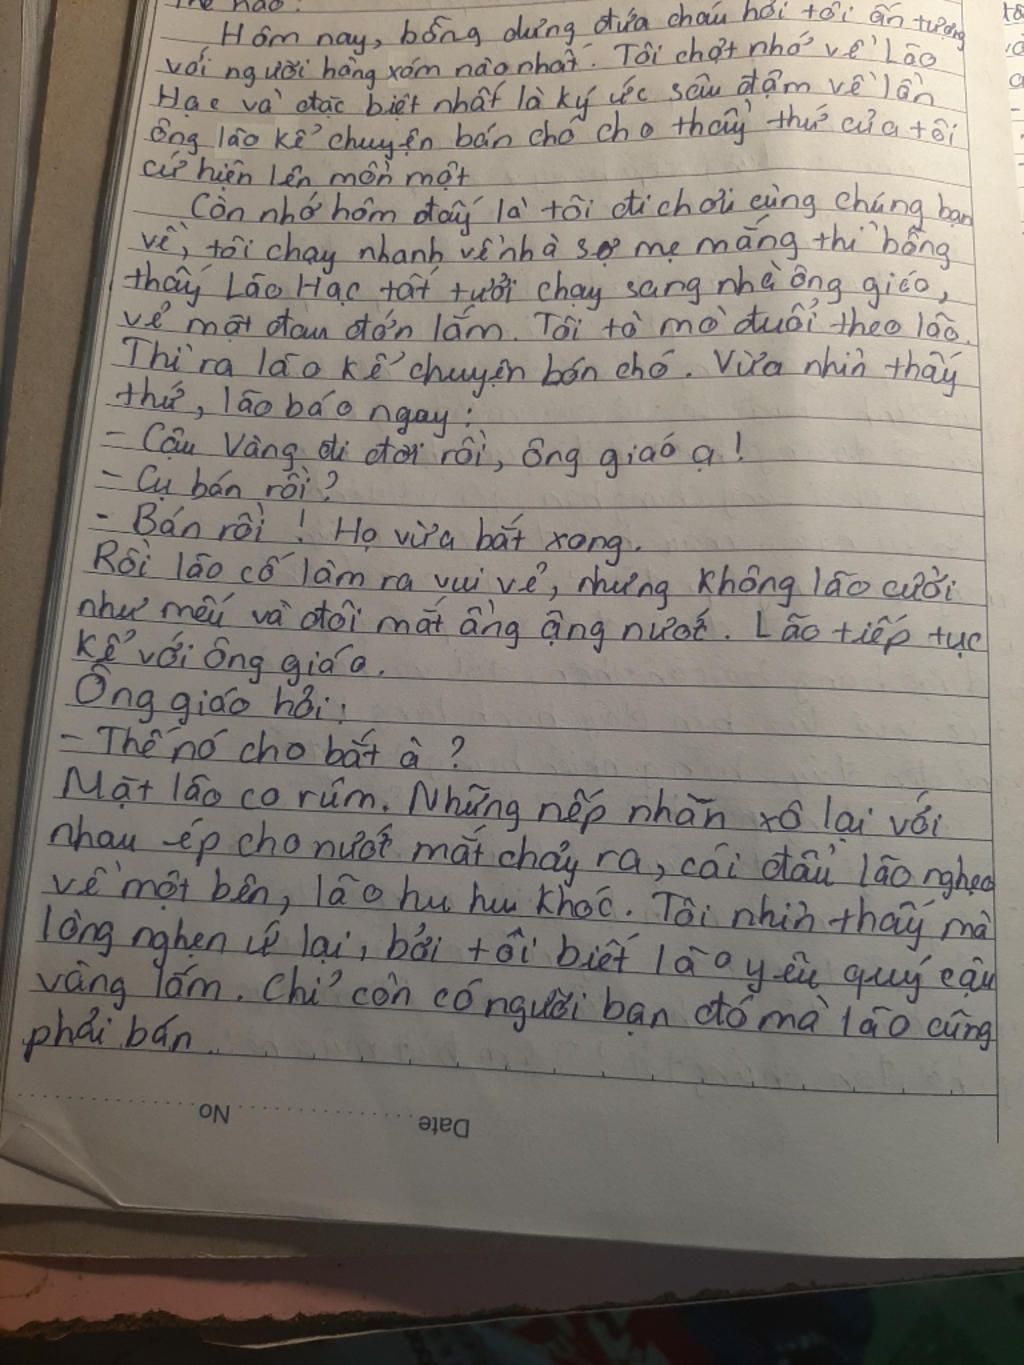 thế nào?
Hôm nay, bỗng dưng đứa cháu hỏi tôi ấn tượng
với người hàng xóm nào nhất. Tôi chợt nhớ về Lão
Hạc và đặc biệt nhất là ký ức sâu đậm về lần
ông lão kể chuyện bán chó cho thầy thứ của tôi
cứ hiện lên mồn một
Còn nhớ hôm đấy là tôi đi chơi cùng chúng bạn
về, tôi chạy nhanh về nhà sợ mẹ mắng thì bỗng
thấy Lão Hạc tất tưởi chạy sang nhà ông giáo,
vẻ mặt đau đớn lắm. Tôi tò mò đuổi theo lão.
Thì ra lão kể chuyện bán chó. Vừa nhìn thấy
thứ, lão báo ngay:
- Cậu Vàng đi đời rồi, ông giáo ạ!
- Cụ bán rồi?
- Bán rồi! Họ vừa bắt xong.
Rồi lão cố làm ra vui vẻ, nhưng không lão cười
như mếu và đôi mắt ầng ậng nước. Lão tiếp tục
kể với ông giáo.
Ông giáo hỏi:
- Thế nó cho bắt à?
Mặt lão co rúm. Những nếp nhăn xô lại với
nhau ép cho nước mắt chảy ra, cái đầu lão nghẹo
về một bên, lão hu hu khóc. Tôi nhìn thấy mà
lòng nghẹn ứ lại, bởi tôi biết lão yêu quý cậu
vàng lắm. Chỉ còn có người bạn đó mà lão cũng
phải bán
No
Date